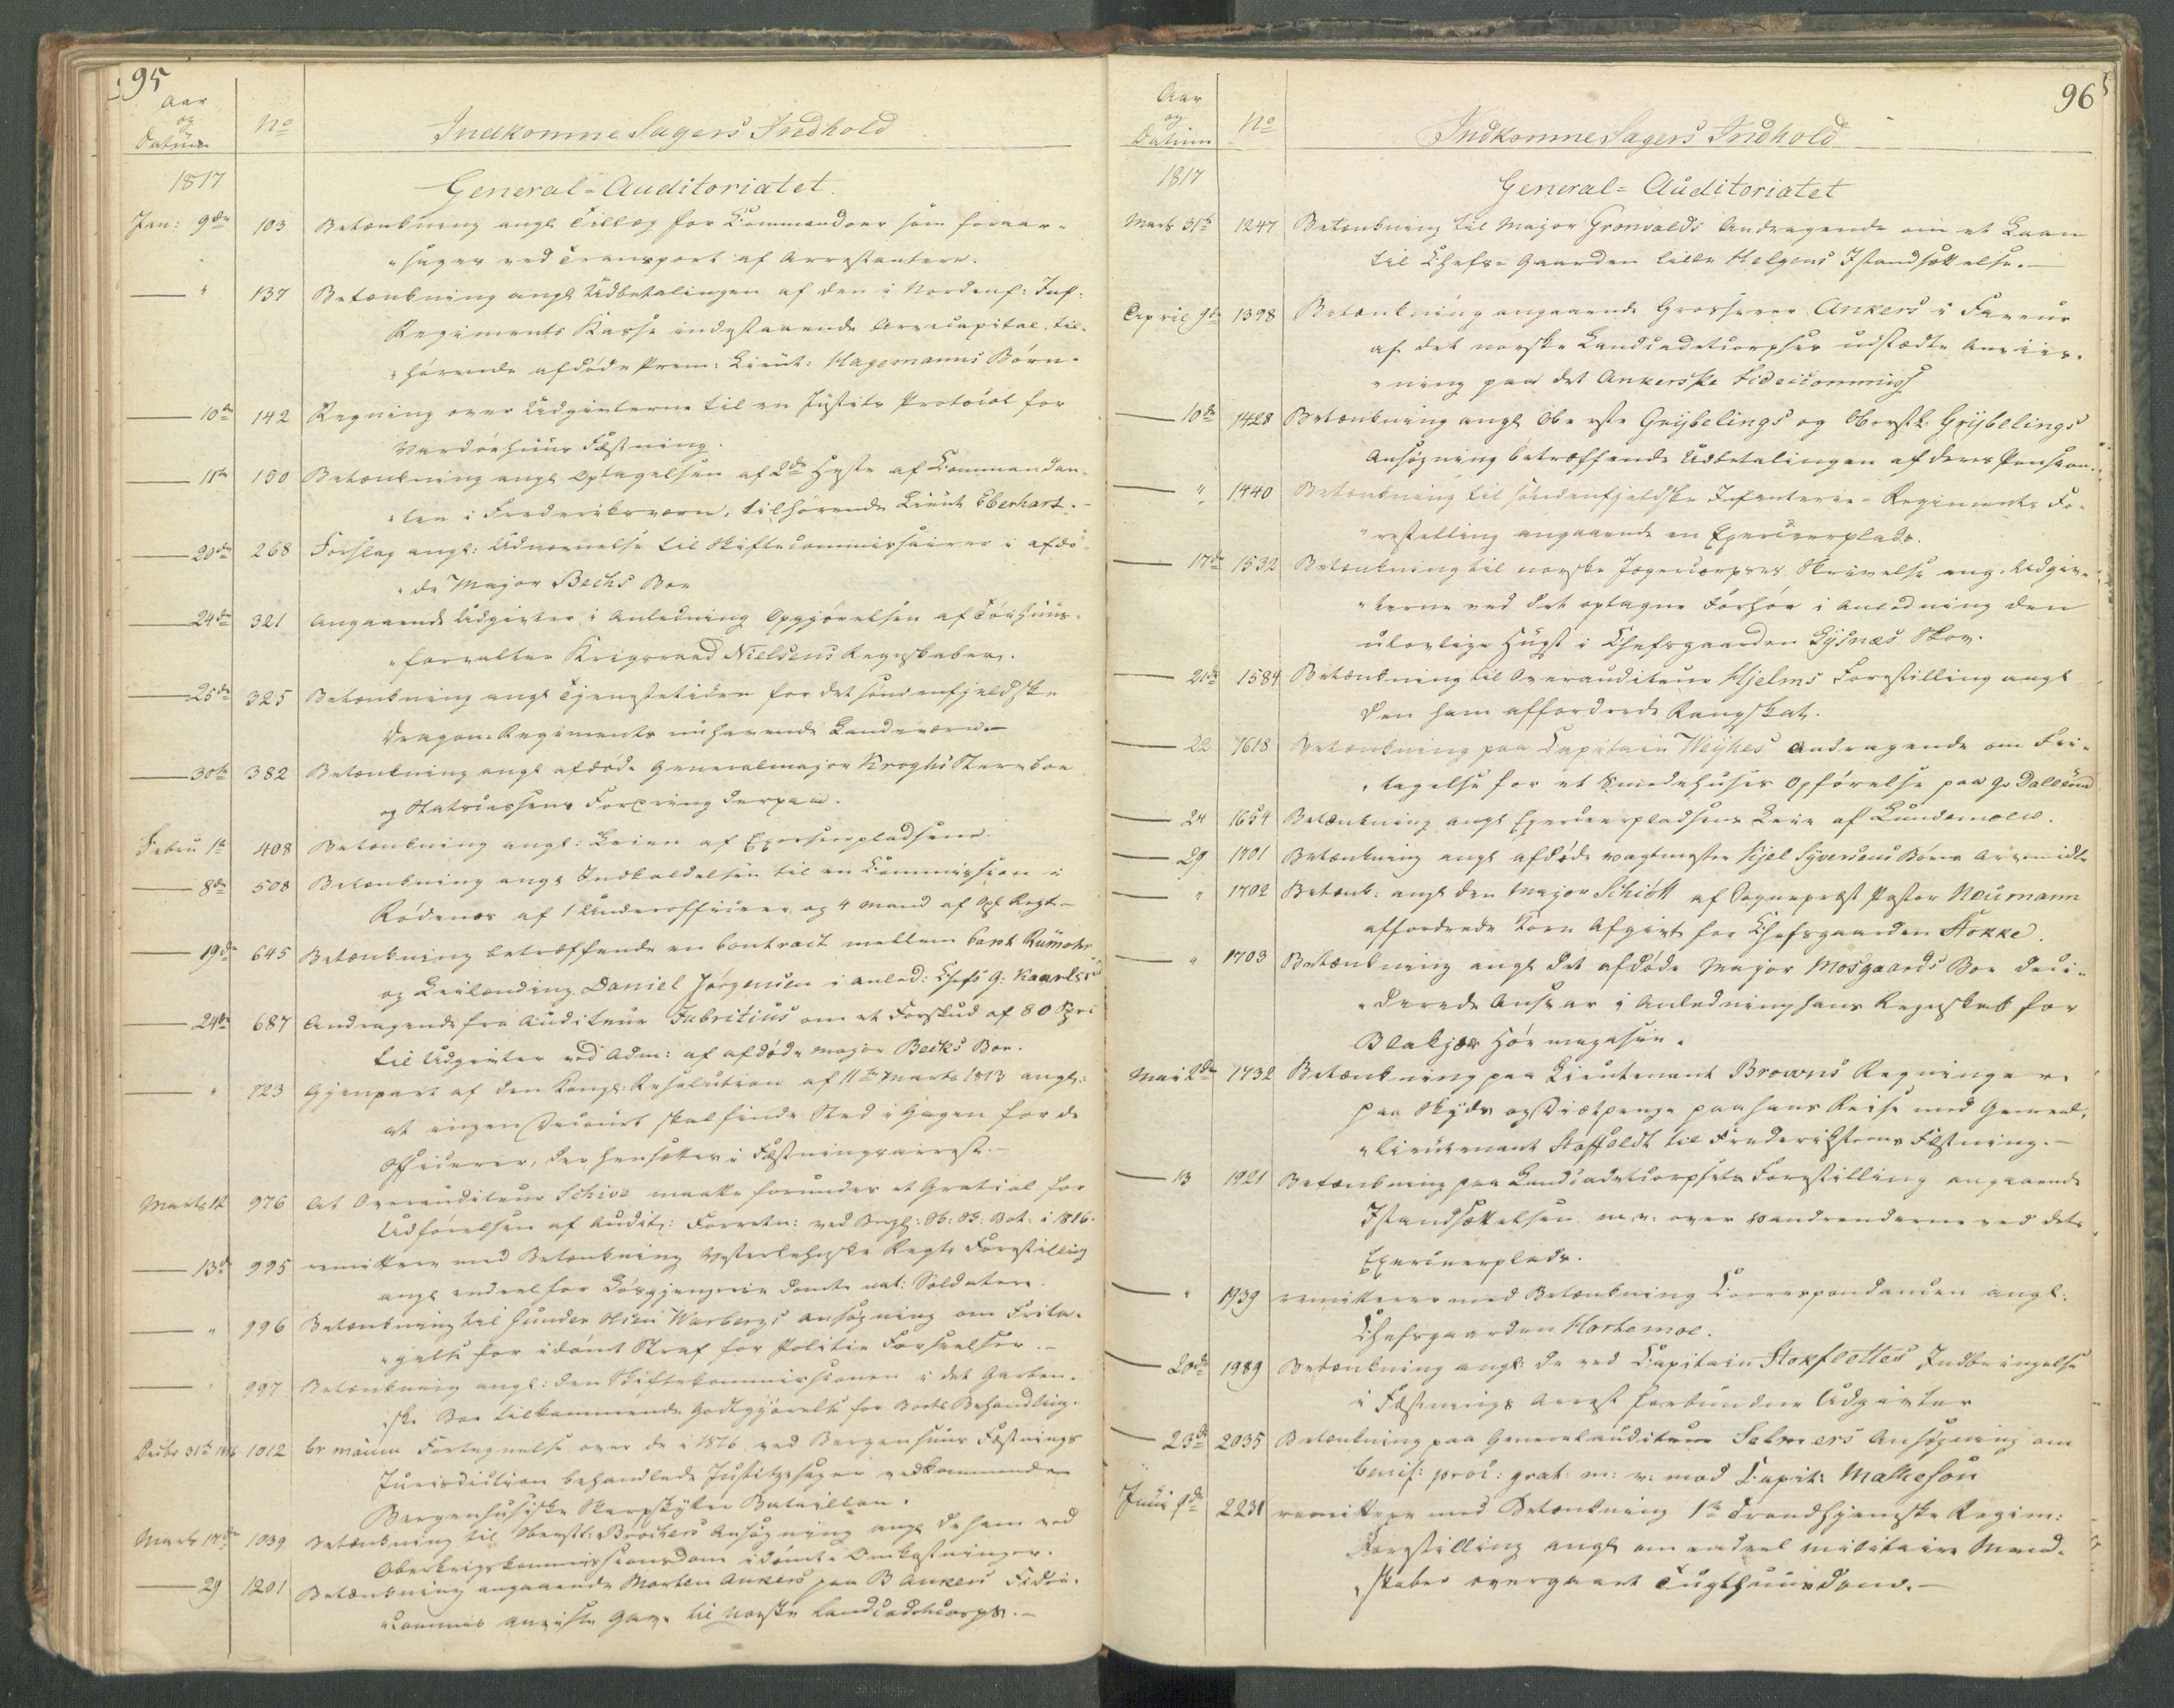 95
Aar
og
Datum
No
Indkomne Sagers Indhold
1817
General-Auditoriatet.
Jan: 9de 103 Betænkning angl Tillæg for Commandoer som foraar-
"sages ved Transport af Arrestantere.
" 137 Betænkning angl Udbetalingen af den i Nordenf: Inf:
Regiments Kasse indestaaende Arvecapital, til-
"hørende afdøde Prem: Lieut: Hagemanns Børn.
10de 142 Regning over Udgivterne til en Justits Protocol for
Vardøehuus Fæstning.
11te 150 Betænkning angl Optagelsen af 2de Heste af Commandan-
"ten i Frederiksværn, tilhørende Lieut Eberhart.
20de 268 Forslag angl: Udnævnelse til Skiftecommissairer i afdø-
"de Major Bechs Boe
24de 321 Angaaende Udgivter i Anledning Opgjørelsen af Tøihuus-
"forvalter Krigsraad Nielsens Regnskaber.
25de 325 Betænkning angl Tjenestetiden for det søndenfjeldske
Dragon-Regiments nuhavende Landeværn.
30te 382 Betænkning angl afdøde Generalmajor Kroghs Sterboe
og Statscassens Fordring derpaa.
Febru 1te 408 Betænkning angl: Leien af Exerseerpladsene.
8de 508 Betænkning angl Indkaldelsen til en Commission i
Rødenæs af 1 Underofficeer og 4 Mand af Opl Regt.
19de 645 Betænkning betræffende en Contract mellem Capt Rumohr
og Leilænding Daniel Jørgensen i anled: Chefs G: Kaarlsr
24de 687 Andragende fra Auditeur Fabritius om et Forskud af 80 Spd
til Udgivter ved Adm: af afdøde Major Becks Boe.
" 723 Gjenpart af den Kongl: Resolution af 11te Marts 1813 angl:
at ingen skal finde Sted i Gagen for de
Officierer, der hensættes i Fæstningsarrest.
Marts 12 976 At Overauditeur Schive maatte forundes et Gratial for
Udførelsen af Audit: Forretn: ved Bat: i 1816.
13de 995 remitterer med Betænkning Vesterlehnske Regts Forestilling
angl endeel for Løsgjængerie dømte nat: Soldatere.
" 996 Betænkning til Junder Warbergs Ansøgning om Frita-
"gelse for idømt Straf for Politie Forseelser.
" 997 Betænkning angl: den Skiftekommissionen i det Garben-
"ske Boe tilkommende Godtgjørelse for Boets Behandling.
Decbr 31te 1816 1012 br manu Fortegnelse over de i 1816 ved Bergenhuus Fæstnings
Jurisdiction behandlede Justitssager vedkommende
Bergenhusiske Skarpskytter Bataillon.
Marts 17de 1039 Betænkning til Oberstl: Brochers Ansøgning angl de ham ved
Oberkrigskommissionsdom idømte Omkostninger.
29 1201 Betænkning angaaende Morten Ankers paa B Ankers Fidei-
"commis anviste Gave til Norske Landcadetcorps.
96
Aar
og
Datum
No
Indkomne Sagers Indhold
1817
General-Auditoriatet
Marts 31te 1247 Betænkning til Major Gronvolds Andragende om et Laan
til Chefs-Gaarden lille Helgens Istandsættelse.
April 9de 1398 Betænkning angaaende Grosserer Ankers i Faveur
af det norske Landcadetcorpses udstædte Anviis-
"ning paa det Ankerske Fideicommiss
10de 1428 Betænkning angl Oberste Grÿbelings og Oberstl: Grÿbelings
Ansøgning betræffende Udbetalingen af deres Pension.
" 1440 Betænkning til søndenfjeldske Infanterie-Regiments Fo-
"restilling angaaende en Exerceerplads.
17de 1532 Betænkning til norske Jægercorpses Skrivelse ang: Udgiv-
"terne ved det optagne Forhør i Anledning den
ulovlige Hugst i Chefsgaarden Lÿsnæs Skov.
21de 1584 Betænkning til Overauditeur Hjelms Forestilling angl
den ham affordrede Rangskat.
22 1618 Betænkning paa Capitain Weÿhes Andragende om Fri-
"tagelse for et Smedehuses Opførelse paa Gr Dallerud
24 1654 Betænkning angl Exerceerpladsens Leie af Lundemoen.
29 1701 Betænkning angl afdøde Vagtmester Kjel Syversens Børns Arvemidle
" 1702 Betænk: angl den Major Schiøtt af Sognepræst Pastor Neumann
affordrede Korn Afgivt for Chefsgaarden Stokke.
" 1703 Betænkning angl det afdøde Major Mosgaards Boe deci-
"derede Ansvar i Anledning hans Regnskab for
Blakjær Høe magasin.
Mai 2de 1732 Betænkning paa Lieutenant Browns Regninger
paa Skyds og Diætpenge paa hans Reise med General-
"Lieutenant Staffeldt til Frederikssteens Fæstning.
13 1921 Betænkning paa Landcadetcorpsets Forestilling angaaende
Istandsættelsen m.v: over Vandrenderne ved dets
Exerceerplads.
" 1939 remitteres med Betænkning Correspondancen angl:
Chefsgaarden Hortemoe.
20de 1989 Betænkning angl: de ved Capitain Stokflettes Indbringelse
i Fæstnings Arrest forbundne Udgivter
23de 2035 Betænkning paa Generalauditeur Selmers Ansøgning om
benef: proc: grat: m: v: mod Capit: Matheson
Juni 9de 2231 remitterer med Betænkning 1te Trondhjemske Regim:
Forestilling angl om endeel militaire Mand-
"skaber overgaaet Tugthuusdom.